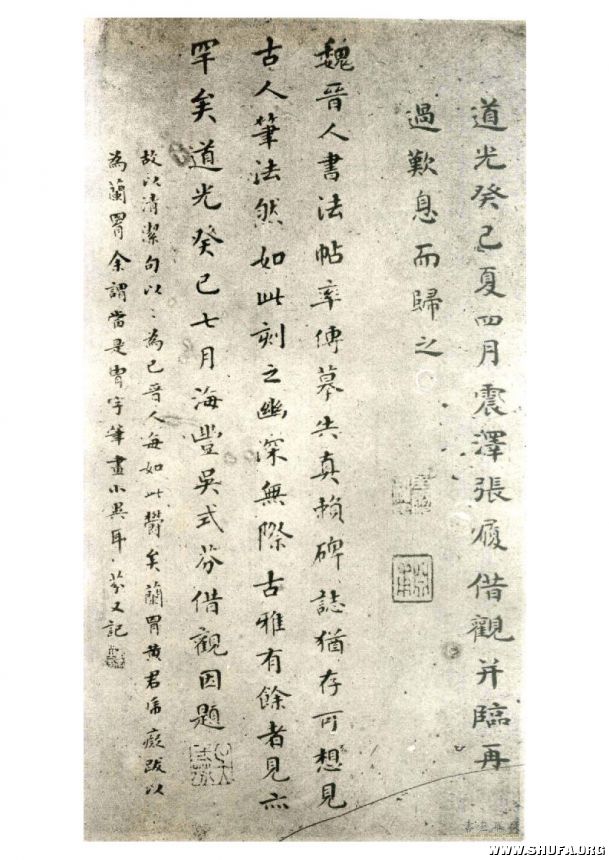 道光癸巳夏四月震澤張履借觀并臨再
過歎息而歸之
魏晉人書法帖率傳摹失真賴碑誌猶存可想見
古人筆法然如此刻之幽深無際古雅有餘者見亦
罕矣道光癸巳七月海豐吳式芬借觀因題
故以清潔句以〻為已晉人每如此欝矣蘭胃黃君乕癡跋以
為蘭胃余謂當是冑字筆畫小異耳芬又記
WWW.SHUFA.ORG